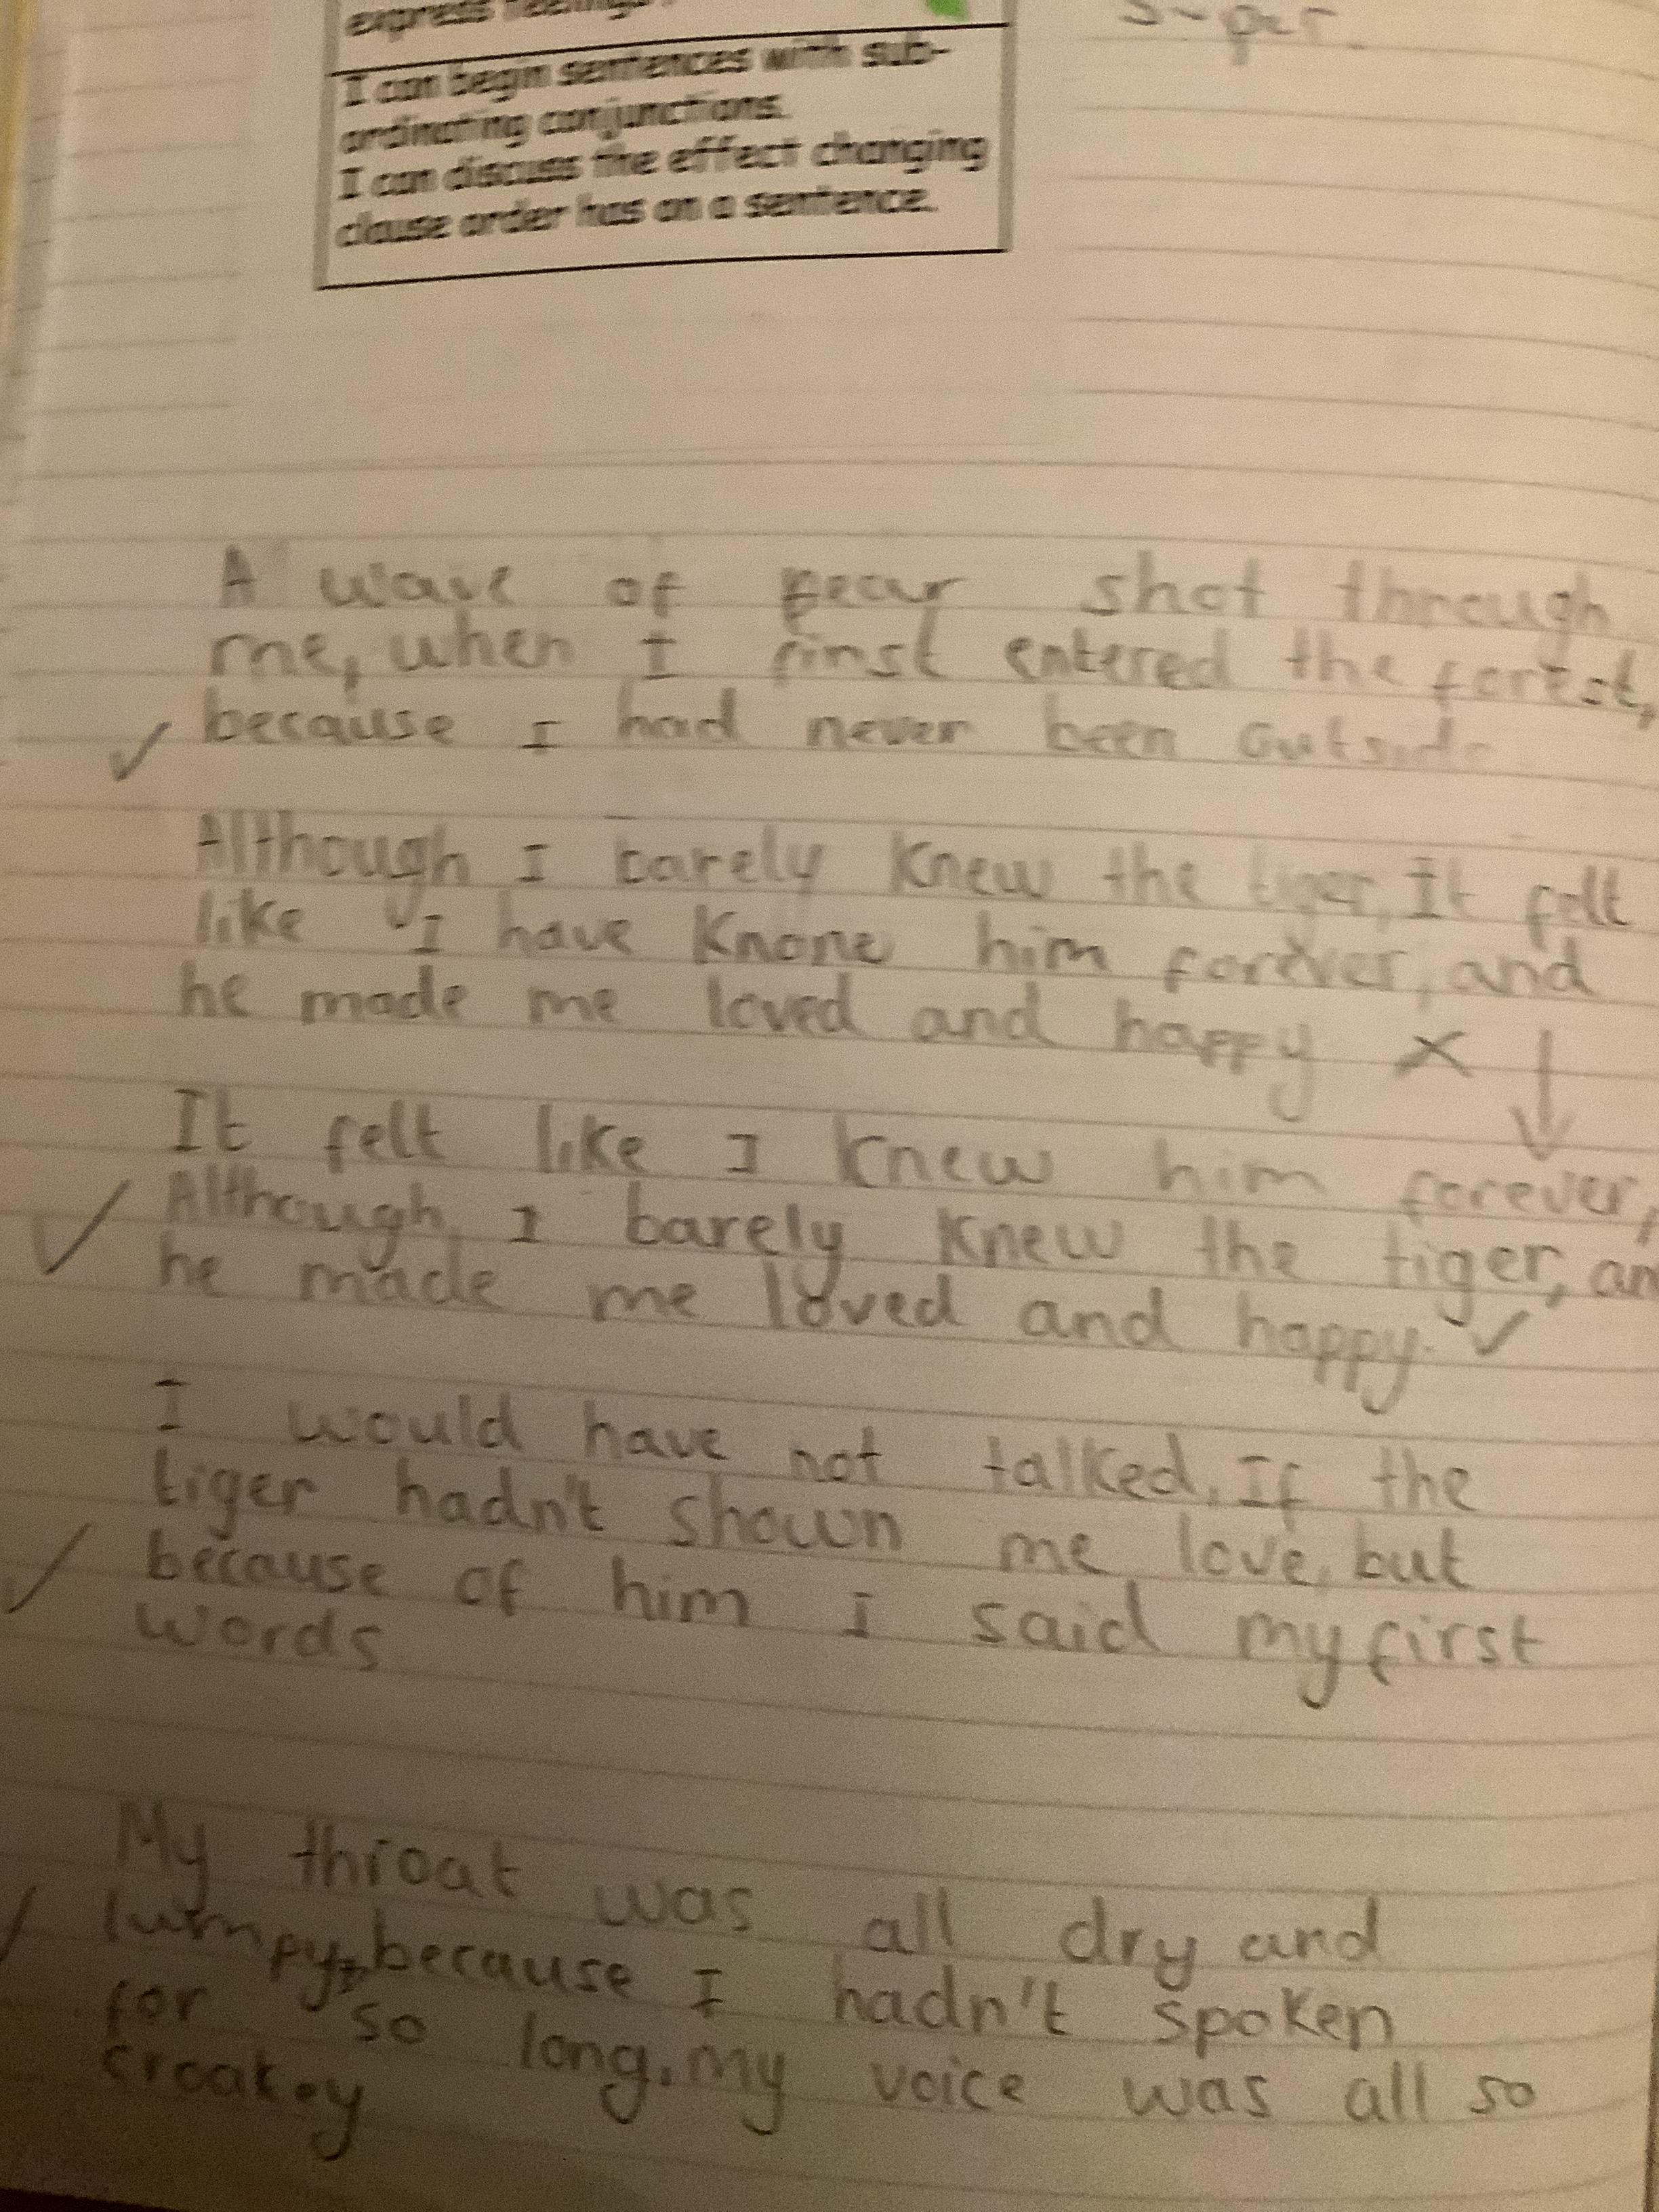 express feelings.
super.
I can begin sentences with sub-
ordinating conjunctions.
I can discuss the effect changing
clause order has on a sentence.
A wave of fear shot through
me, when I first entered the forest,
because I had never been outside.
Although I barely knew the tiger, It felt
like I have knone him forever, and
he made me loved and happy
It felt like I knew him forever,
Although I barely knew the tiger, an
he made me loved and happy.
I would have not talked, If the
tiger hadn't shown me love, but
because of him I said my first
words
My throat was all dry and
lumpy, because I hadn't spoken
for so long. my voice was all so
croakey